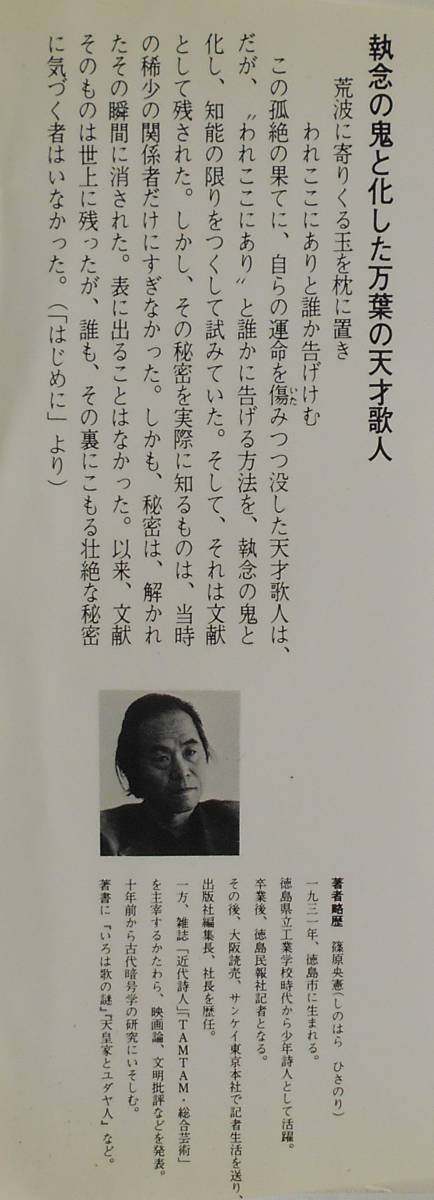 執念の鬼と化した万葉の天才歌人
荒波に寄りくる玉を枕に置き
われここにありと誰か告げけむ
この孤絶の果てに、自らの運命を傷みつつ没した天才歌人は、
いた
だが、〝われここにあり〟と誰かに告げる方法を、執念の鬼と
化し、知能の限りをつくして試みていた。そして、それは文献
として残された。しかし、その秘密を実際に知るものは、当時
の稀少の関係者だけにすぎなかった。しかも、秘密は、解かれ
たその瞬間に消された。表に出ることはなかった。以来、文献
そのものは世上に残ったが、誰も、その裏にこもる壮絶な秘密
に気づく者はいなかった。（「はじめに」より）
著者略歴　篠原央憲（しのはら　ひさのり）
一九三一年、徳島市に生まれる。
徳島県立工業学校時代から少年詩人として活躍。
卒業後、徳島民報社記者となる。
その後、大阪読売、サンケイ東京本社で記者生活を送り、
出版社編集長、社長を歴任。
一方、雑誌「近代詩人」「TAMTAM・総合芸術」
を主宰するかたわら、映画論、文明批評などを発表。
十年前から古代暗号学の研究にいそしむ。
著書に『いろは歌の謎』『天皇家とユダヤ人』など。